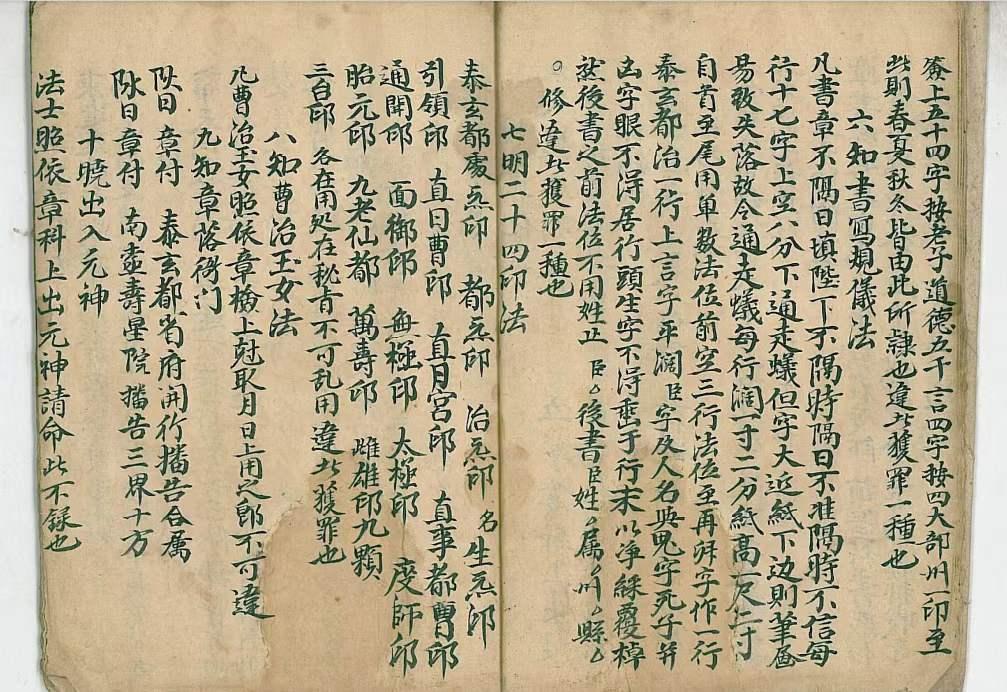 簽上五十四字按老子道德五千言四字按四大部州一印至
此則春夏秋冬皆由此所隷也違此獲罪一種也
六知書寫規儀法
凡書章不隔日填陛下不隔時隔日不准隔時不信每
行十七字上空八分下通走蟻但字大近紙下边則筆
易致失落故今通走蟻每行濶一寸二分紙高一尺二寸
自首至尾用单数法位前空三行法位至再拜字作一行
泰玄都治一行上言字平濶臣字及人名與鬼字死子并
凶字眼不淂居行頭生字不淂埀于行末以净綵覆棹
然後書之前法位不用姓正 臣〻後書臣姓〻属〻州〻縣〻
○修違此獲罪一種也
七明二十四印法
泰玄都䖏炁印 都炁印 治炁印 名 生炁印
引領印 直日曹印 直月宮印 直事都曹印
通開印 面御印 無極印 太極印 度師印
胎元印 九老仙都 萬壽印 雌雄印九顆
三台印 各在用処在秘旨不可乱用違此獲罪也
八知曹治玉女法
凡曹治玉女照依章檢上尅取月日上用之郎不可違
九知章落衙门
陽日章付 泰玄都省府開行播告合属
阴日章付 南壷壽星院播告三界十方
十曉出入元神
法士照依章科上出元神請命此不録也